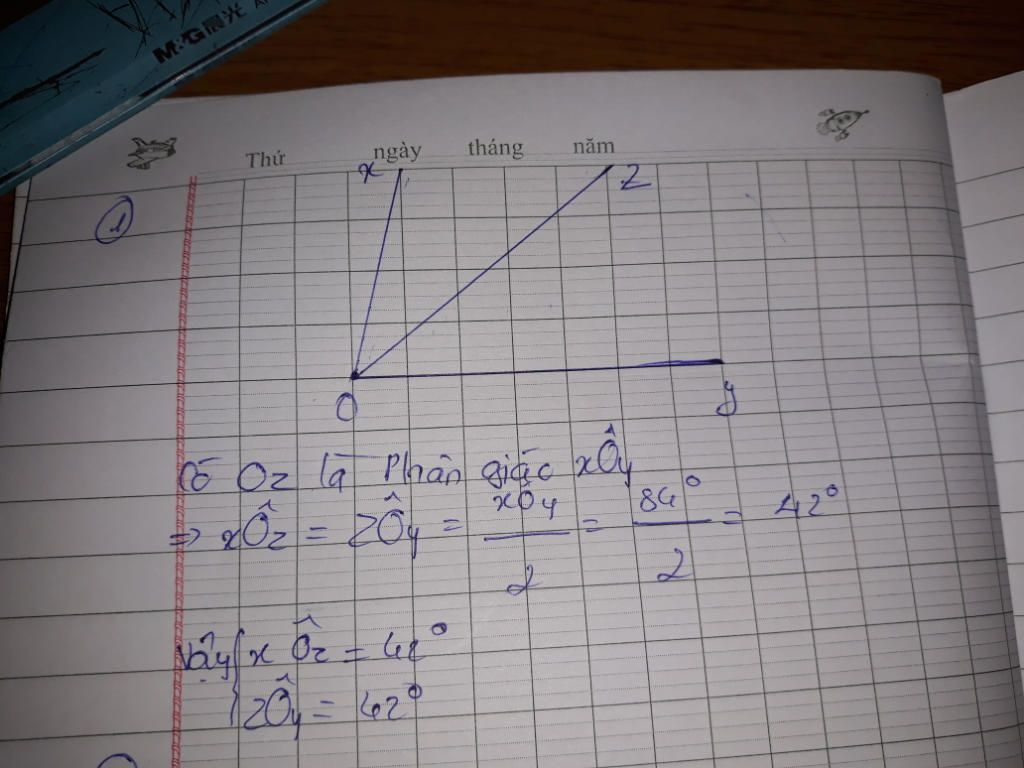 M&G 晨光
Thứ ngày tháng năm
x z
1
O y
Có Oz là Phân giác xÔy
=> xÔz = zÔy = xÔy / 2 = 84° / 2 = 42°
Vậy { xÔz = 42°
zÔy = 42°